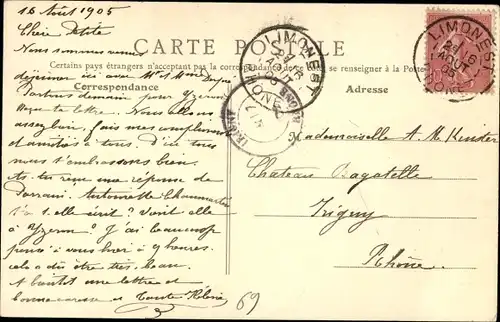 16 Août 1905
Chère Petite
Nous sommes venus
déjeuner ici avec Mr & Mme
Partons demain pour Yzeron
ta lettre. Nous allons
assez bien, fais mes compliments
et amitiés à tous. D'ici tous
nous t'embrassons bien.
As-tu reçu une réponse de
Antoinette
t'a-t-elle écrit? Vient-elle
à Yzeron? J'ai beaucoup
pensé à vous hier à 9 heures.
cela a dû être très beau.
A bientôt une lettre et
bonne caresse de Tante Hélène
CARTE POSTALE
Certains pays étrangers n'acceptant pas la correspondance se renseigner à la Poste
Correspondance
Adresse
LIMONEST
16
AOUT
05
RHONE
LIMONEST
16
AOUT
05
RHONE
IRIGNY
RHONE
Mademoiselle A. M.
Chateau Bagatelle
Irigny
Rhône
69